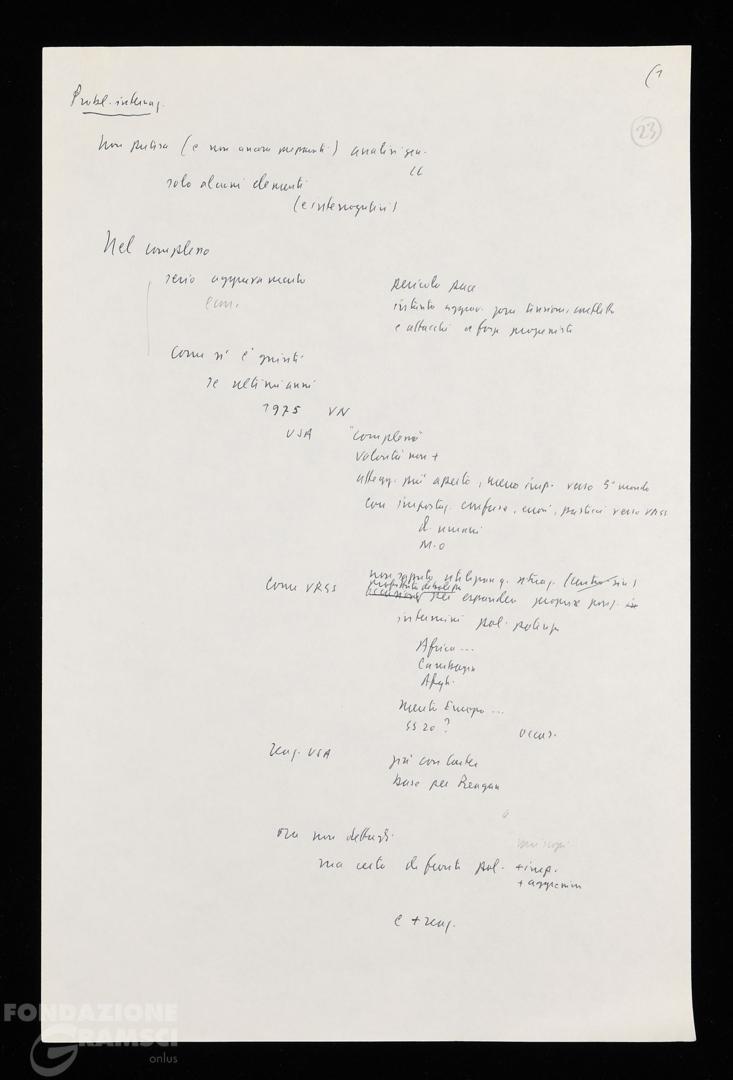 (1
23
Probl. internaz.
Non pretesa (e non ancora ) analisi gen.
solo alcuni elementi
(e interrogativi)
Nel complesso
serio aggravamento
pericolo pace
intanto aggrav. zone tensioni, conflitti
e attacchi a forze progressiste
Come si è giunti
se ultimi anni
1975 VN
USA "complesso"
volontà non +
attegg. più aperto, meno imp. verso 3° mondo
con impostaz. confuse, errori, pasticci verso URSS
d. umani
M.O
Come URSS
non saputo
per espandere proprie posiz.
in termini pol. potenza
Africa ...
Cambogia
Afgh.
Europa ...
SS 20 ?
occas.
Reaz. USA
già con Carter
base per Reagan
Ora non dettagli
ma certo di fronte pol. + imp.
+ aggressiva
e + reaz.
FONDAZIONE
GRAMSCI
onlus